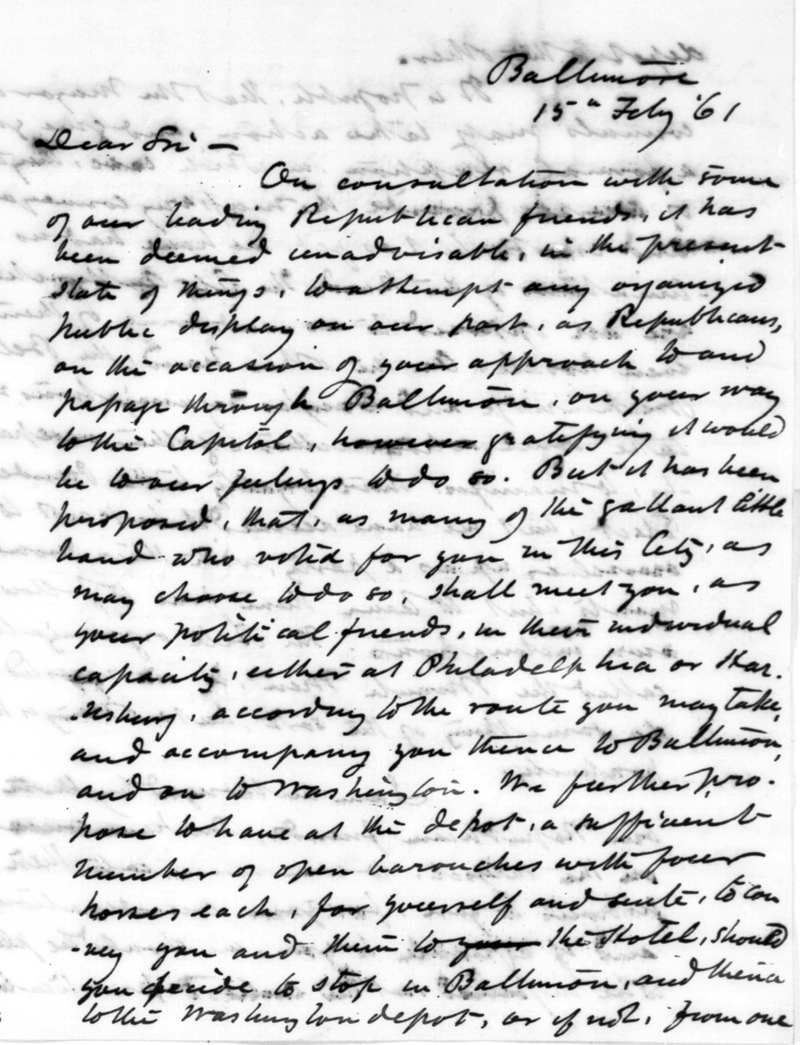 Baltimore
15th Feby '61
Dear Sir —
On consultation with some
of our leading Republican friends, it has
been deemed unadvisable, in the present
state of things, to attempt any organized
public display on our part, as Republicans,
on the occasion of your approach to and
passage through Baltimore, on your way
to the Capitol, however gratifying it would
be to our feelings to do so. But it has been
proposed, that, as many of the gallant little
band who voted for you in this City, as
may choose to do so, shall meet you, as
your political friends, in their individual
capacity, either at Philadelphia or Har-
-risburg, according to the route you may take,
and accompany you thence to Baltimore,
and on to Washington. We further pro-
pose to have at the depot, a sufficient
number of open barouches with four
horses each, for yourself and suite, to con
-vey you and them to your the Hotel, should
you decide to stop in Baltimore, and thence
to the Washington depot, or if not, from one